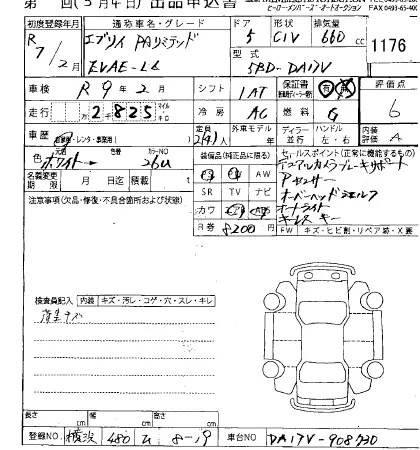 第 回 (5月4日) 出品申込書
ヒーローメンバーズ・オートオークション FAX 0493-65-
初度登録年月 通称車名・グレード ドア 形状 排気量
R 7/2月 エブリイ PAリミテッド 5 CIV 660cc 1176
EVAE-L6 型式 5BD-DA17V
車検 R 9年 2月 シフト IAT 保証書 有 無 評価点
走行 2万2825 マイル キロ 冷房 AC 燃料 G 6
車歴 自家用・レンタ・事業用 定員 2(4)人 外来モデル 年 ディラー 並行 ハンドル 左・右 内装評価 A
色 元色 ホワイト→ 色替 カラーNO 26U
装備品(純正品に限る) セールスポイント(正常に機能するもの)
名義変更期限 月 日迄 積載 t
AW デュアルカメラブレーキサポート
SR TV ナビ Pセンサー
注意事項(欠品・修復・不具合箇所および状態)
カワ オーバーヘッドシェルフ
オートライト
R券 8200円 キーレスキー
FW キズ・ヒビ割・リペア跡・X要
検査員記入 内装 キズ・汚レ・コゲ・穴・スレ・キレ
荷室キズ
長さ cm 幅 cm 高さ cm
登録NO. 横浜 480 ム 8-19 車台NO DA17V-908730